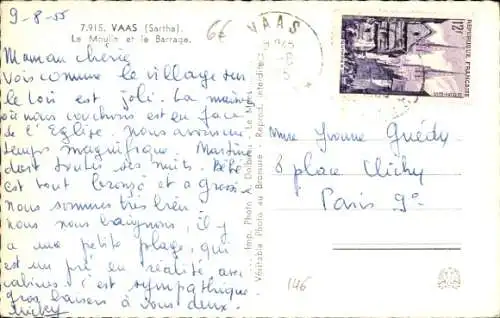 9-8-55
7.915. VAAS (Sarthe).
Le Moulin et le Barrage.
66
Maman chérie
Vois comme le village sur
le Loir est joli. La maison
où nous couchons est en face
de l'Eglise. Nous avons un
temps magnifique. Martine
dort toutes ses nuits. Bébé
est tout bronzé et a grossi
nous sommes très bien
nous nous baignons, il y
a une petite plage, qui
est un pré en réalité avec
cabines c'est sympathique
gros baisers à vous deux.
Micky
Imp. Photo A. Dolbeau - Le Mans
Véritable Photo au Bromure - Reprod. interdite
VAAS
12F
REPUBLIQUE FRANÇAISE
Mme Yvonne Guédy
8 place Clichy
Paris 9e
146